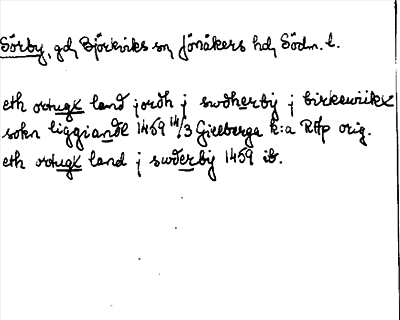 Sörby, gd, Björkviks sn, Jönåkers hd, Södm. l.
eth ortugx land jordh j swdherby j birkewiikx
sokn liggiandæ 1459 14/3 Gilleberga k:a RAp orig.
eth ortugx land j swderby 1459 ib.